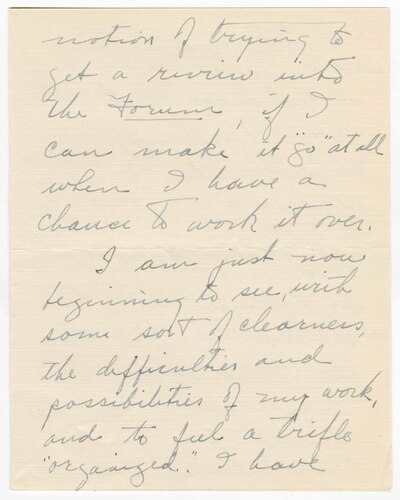 notion of trying to
get a review into
the Forum, if I
can make it "go" at all
when I have a
chance to work it over.
I am just now
beginning to see, with
some sort of clearness,
the difficulties and
possibilities of my work,
and to feel a trifle
"organized." I have